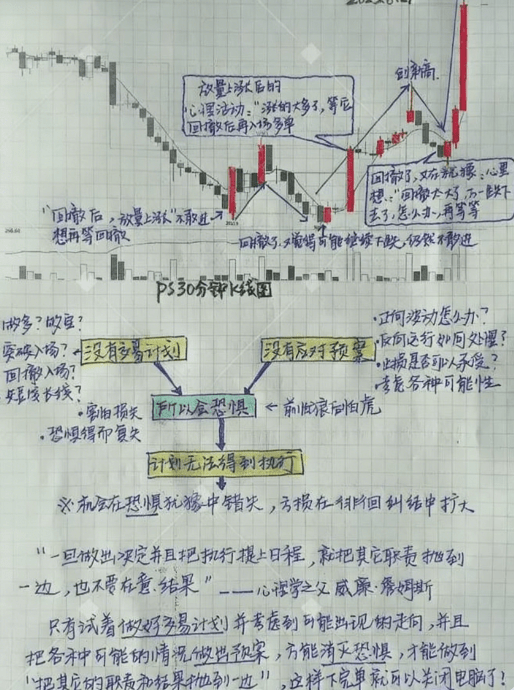 放量上涨后的
心理活动："涨的太多了，等它
回撤后再入场多单
创新高
回撤了，又在犹豫：心里
想："回撤太大了，万一跌下
去了，怎么办，再等等
"回撤后，放量上涨"不敢进
想再等回撤
回撤了，又觉得可能继续下跌，仍然不敢进
PS30分钟K线图
做多？做空？
突破入场？
回撤入场？
短线长线？
没有交易计划
没有应对预案
·如何波动怎么办？
·反向运行如何处理？
·止损是否可以承受？
·考虑各种可能性
·害怕损失
·恐惧得而复失
所以会恐惧
← 前怕狼后怕虎
计划无法得到执行
※机会在恐惧犹豫中错失，亏损在徘徊纠结中扩大
"一旦做出决定并且把执行提上日程，就把其它职责抛到
一边，也不要在意结果" ——心理学之父 威廉·詹姆斯
只有试着做好交易计划并考虑到可能出现的走向，并且
把各种可能的情况做出预案，方能消灭恐惧，才能做到
"把其它的职责和结果抛到一边"，这样下完单就可以关闭电脑了！